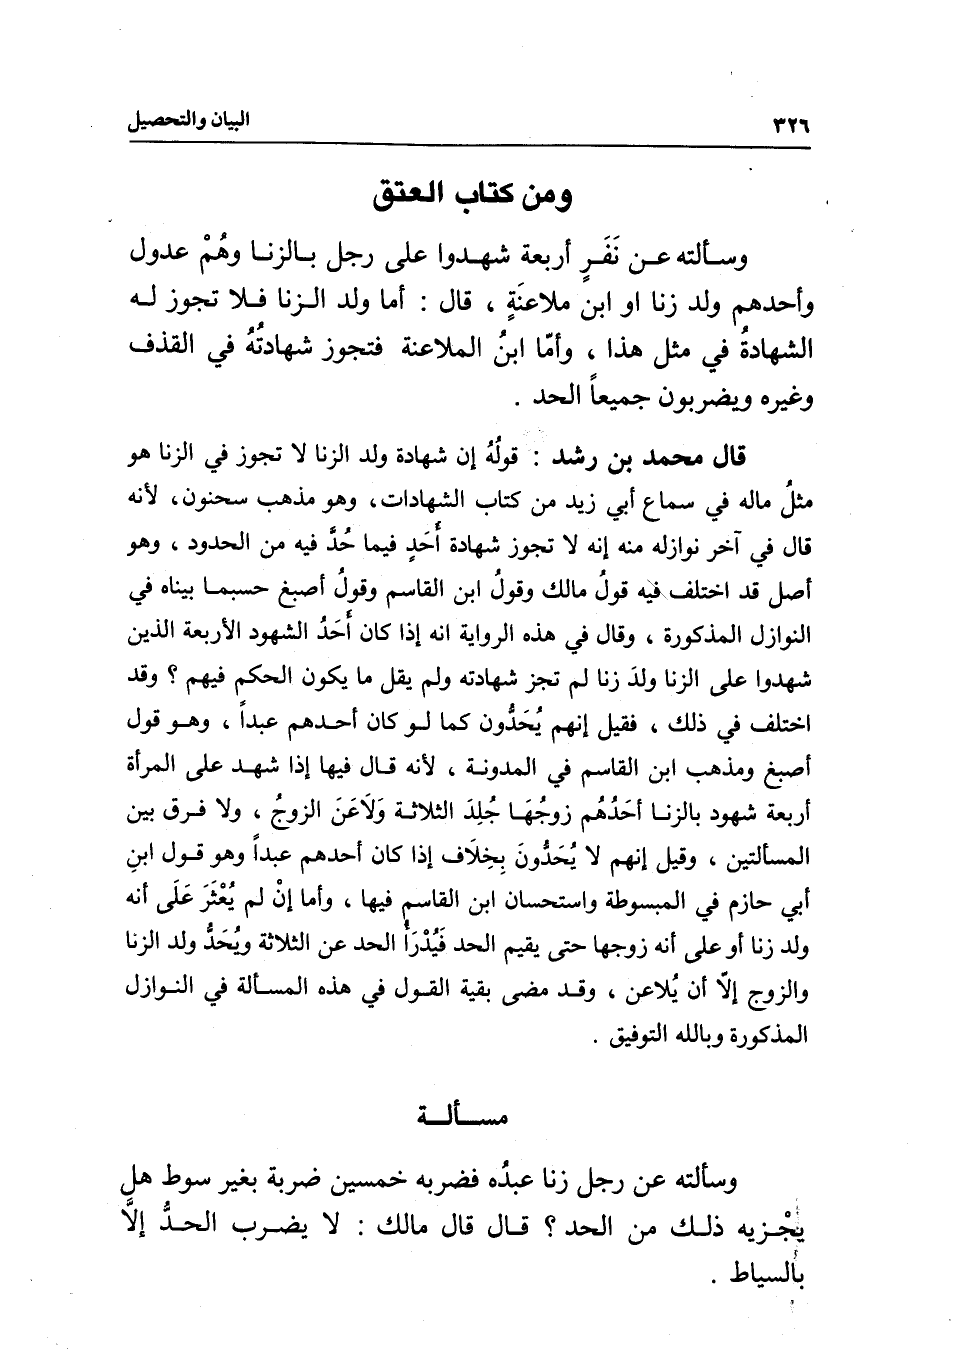 ٣٢٦ البيان والتحصيل
ومن كتاب العتق
وسألته عن نَفَرٍ أربعة شهدوا على رجل بالزنا وهُمْ عدول
وأحدهم ولد زنا او ابن ملاعنَةٍ ، قال : أما ولد الزنا فلا تجوز له
الشهادةُ في مثل هذا ، وأمّا ابنُ الملاعنة فتجوز شهادتُهُ في القذف
وغيره ويضربون جميعاً الحد .
قال محمد بن رشد : قولُهُ إن شهادة ولد الزنا لا تجوز في الزنا هو
مثلُ ماله في سماع أبي زيد من كتاب الشهادات، وهو مذهب سحنون، لأنه
قال في آخر نوازله منه إنه لا تجوز شهادة أَحَدٍ فيما حُدَّ فيه من الحدود ، وهو
أصل قد اختلف فيه قولُ مالك وقولُ ابن القاسم وقولُ أصبغ حسبما بيناه في
النوازل المذكورة ، وقال في هذه الرواية انه إذا كان أَحَدُ الشهود الأربعة الذين
شهدوا على الزنا ولدَ زنا لم تجز شهادته ولم يقل ما يكون الحكم فيهم ؟ وقد
اختلف في ذلك ، فقيل إنهم يُحَدُّون كما لو كان أحدهم عبداً ، وهو قول
أصبغ ومذهب ابن القاسم في المدونة ، لأنه قال فيها إذا شهد على المرأة
أربعة شهود بالزنا أحَدُهُم زوجُهَا جُلِدَ الثلاثة وَلَاعَنَ الزوجُ ، ولا فرق بين
المسألتين ، وقيل إنهم لا يُحَدُّونَ بِخِلَاف إذا كان أحدهم عبداً وهو قول ابنِ
أبي حازم في المبسوطة واستحسان ابن القاسم فيها ، وأما إنْ لم يُعْثَرَ عَلَى أنه
ولد زنا أو على أنه زوجها حتى يقيم الحد فَيُدْرَأُ الحد عن الثلاثة ويُحَدُّ ولد الزنا
والزوج إلّا أن يُلاعن ، وقد مضى بقية القول في هذه المسألة في النوازل
المذكورة وبالله التوفيق .
مسألة
وسألته عن رجل زنا عبدُه فضربه خمسين ضربة بغير سوط هل
يُجْزيه ذلك من الحد ؟ قال قال مالك : لا يضرب الحدُّ إلَّا
بالسياط .